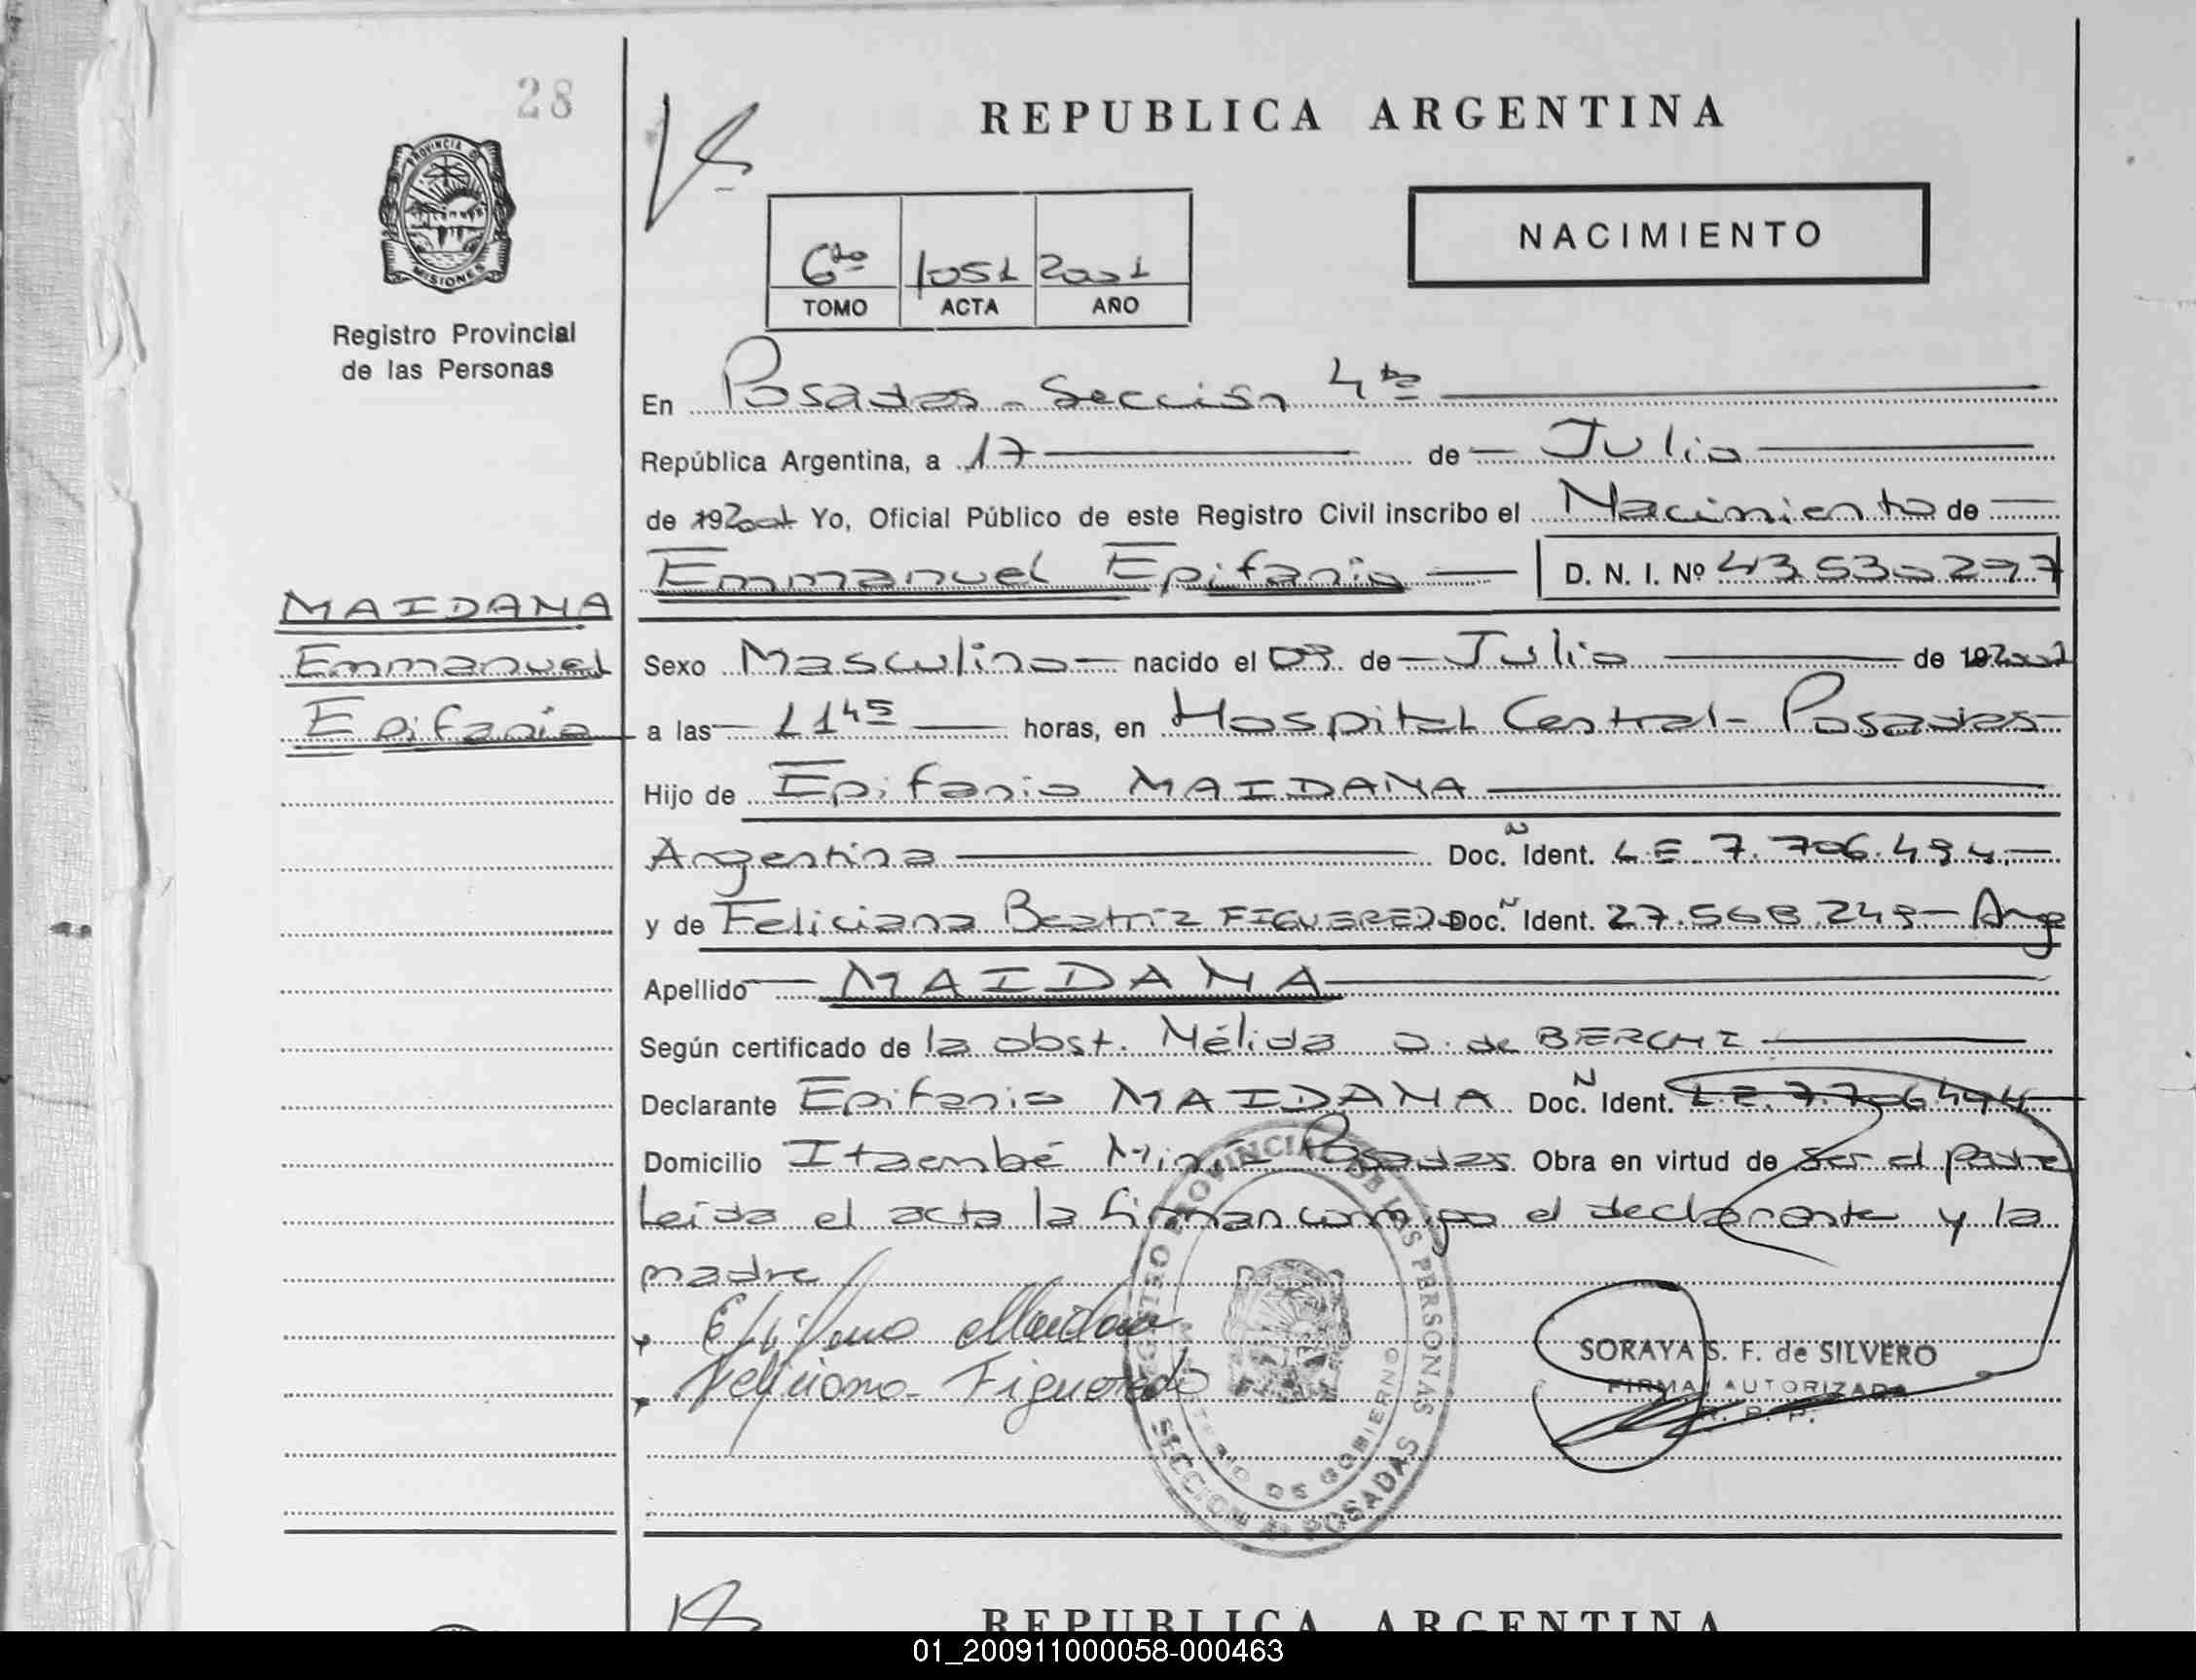 28
REPUBLICA ARGENTINA
PROVINCIA DE
MISIONES
Registro Provincial
de las Personas
NACIMIENTO
6to 1051 2001
TOMO ACTA AÑO
En Posadas - Sección 4ta
República Argentina, a 17 de Julio
de 192001 Yo, Oficial Público de este Registro Civil inscribo el Nacimiento de
Emmanuel Epifanio D. N. I. Nº 43.530.297
MAIDANA
Emmanuel
Epifanio
Sexo Masculino nacido el 09 de Julio de 192001
a las 11 45 horas, en Hospital Central - Posadas
Hijo de Epifanio MAIDANA
Argentina Doc. Ñ Ident. L.E. 7.706.494
y de Feliciana Beatriz FIGUEREDO Doc. Ñ Ident. 27.568.249 - Arg
Apellido MAIDANA
Según certificado de la obst. Nélida O. de BERCHI
Declarante Epifanio MAIDANA Doc. N Ident. L.E. 7.706494
Domicilio Itaembé Miní Posadas Obra en virtud de ser el padre
Leida el acta la firman conmigo el declarante y la
madre
Epifanio Maidana
Feliciana Figueredo
REGISTRO PROVINCIAL DE LAS PERSONAS
MINISTERIO DE GOBIERNO
SECCION 4ª POSADAS
SORAYA S. F. de SILVERO
FIRMA AUTORIZADA
R. P. P.
REPUBLICA ARGENTINA
01_200911000058-000463